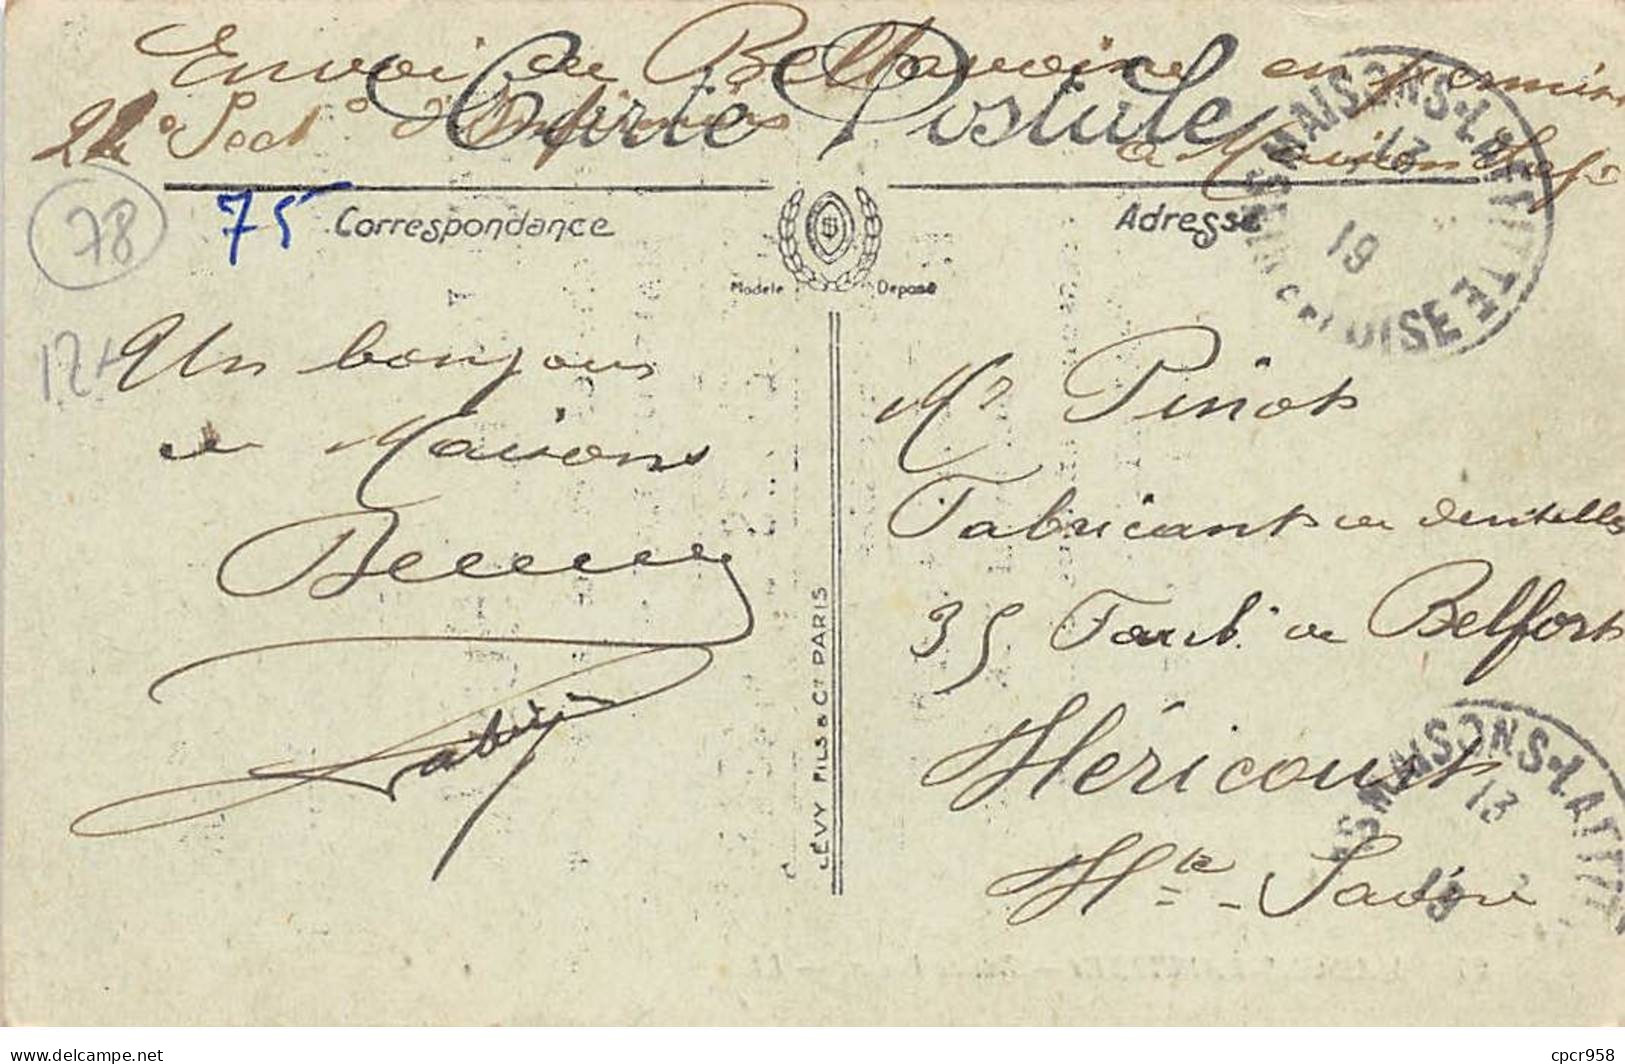 Envoi de Bellavoine en permission
22e Sect° d'Infirmiers
à Maisons
Carte Postale
78
75
Correspondance
Adresse
Modèle Déposé
MAISONS-LAFFITTE
13
19
SEINE-ET-OISE
12+
Un bonjour
de Maisons
Mr Pinot
Fabricant de dentelles
35 Faub. de Belfort
Héricourt
Hte-Saône
LÉVY FILS & Cie PARIS
MAISONS-LAFFITTE
13
19
cpcr958